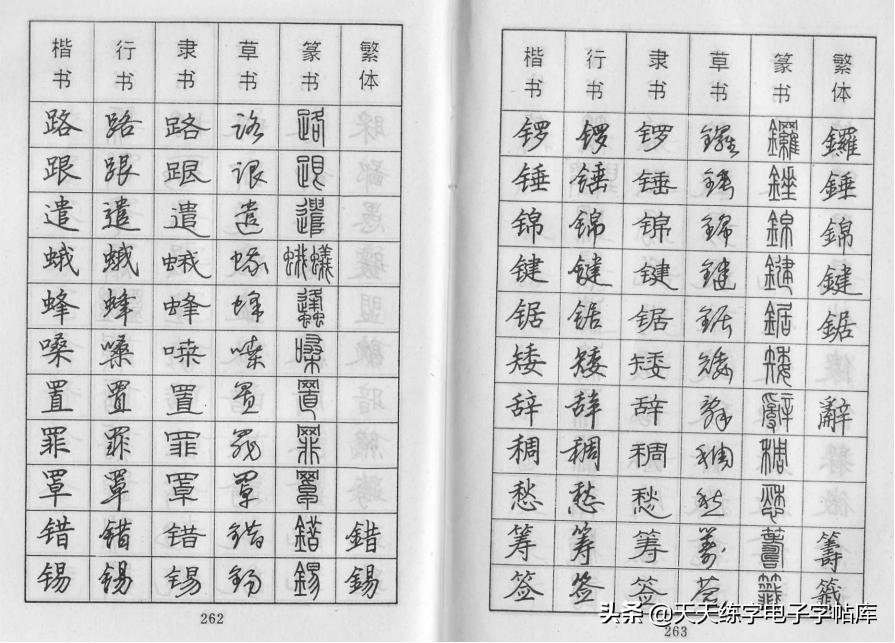 楷书 行书 隶书 草书 篆书 繁体
路 路 路 路 路
跟 跟 跟 跟 跟
遣 遣 遣 遣 遣
蛾 蛾 蛾 蛾 蛾蟻
蜂 蜂 蜂 蜂 蜂
嗓 嗓 嗓 嗓 嗓
置 置 置 置 置
罪 罪 罪 罪 罪
罩 罩 罩 罩 罩
错 错 错 錯 錯 錯
锡 锡 锡 錫 錫 錫
262
楷书 行书 隶书 草书 篆书 繁体
锣 锣 锣 鑼 鑼 鑼
锤 锤 锤 錘 錘 錘
锦 锦 锦 錦 錦 錦
键 键 键 鍵 鍵 鍵
锯 锯 锯 鋸 鋸 鋸
矮 矮 矮 矮 矮
辞 辞 辞 辞 辭 辭
稠 稠 稠 稠 稠
愁 愁 愁 愁 愁
筹 筹 筹 籌 籌 籌
签 签 签 签 籤 籤
263
头条 @天天练字电子字帖库